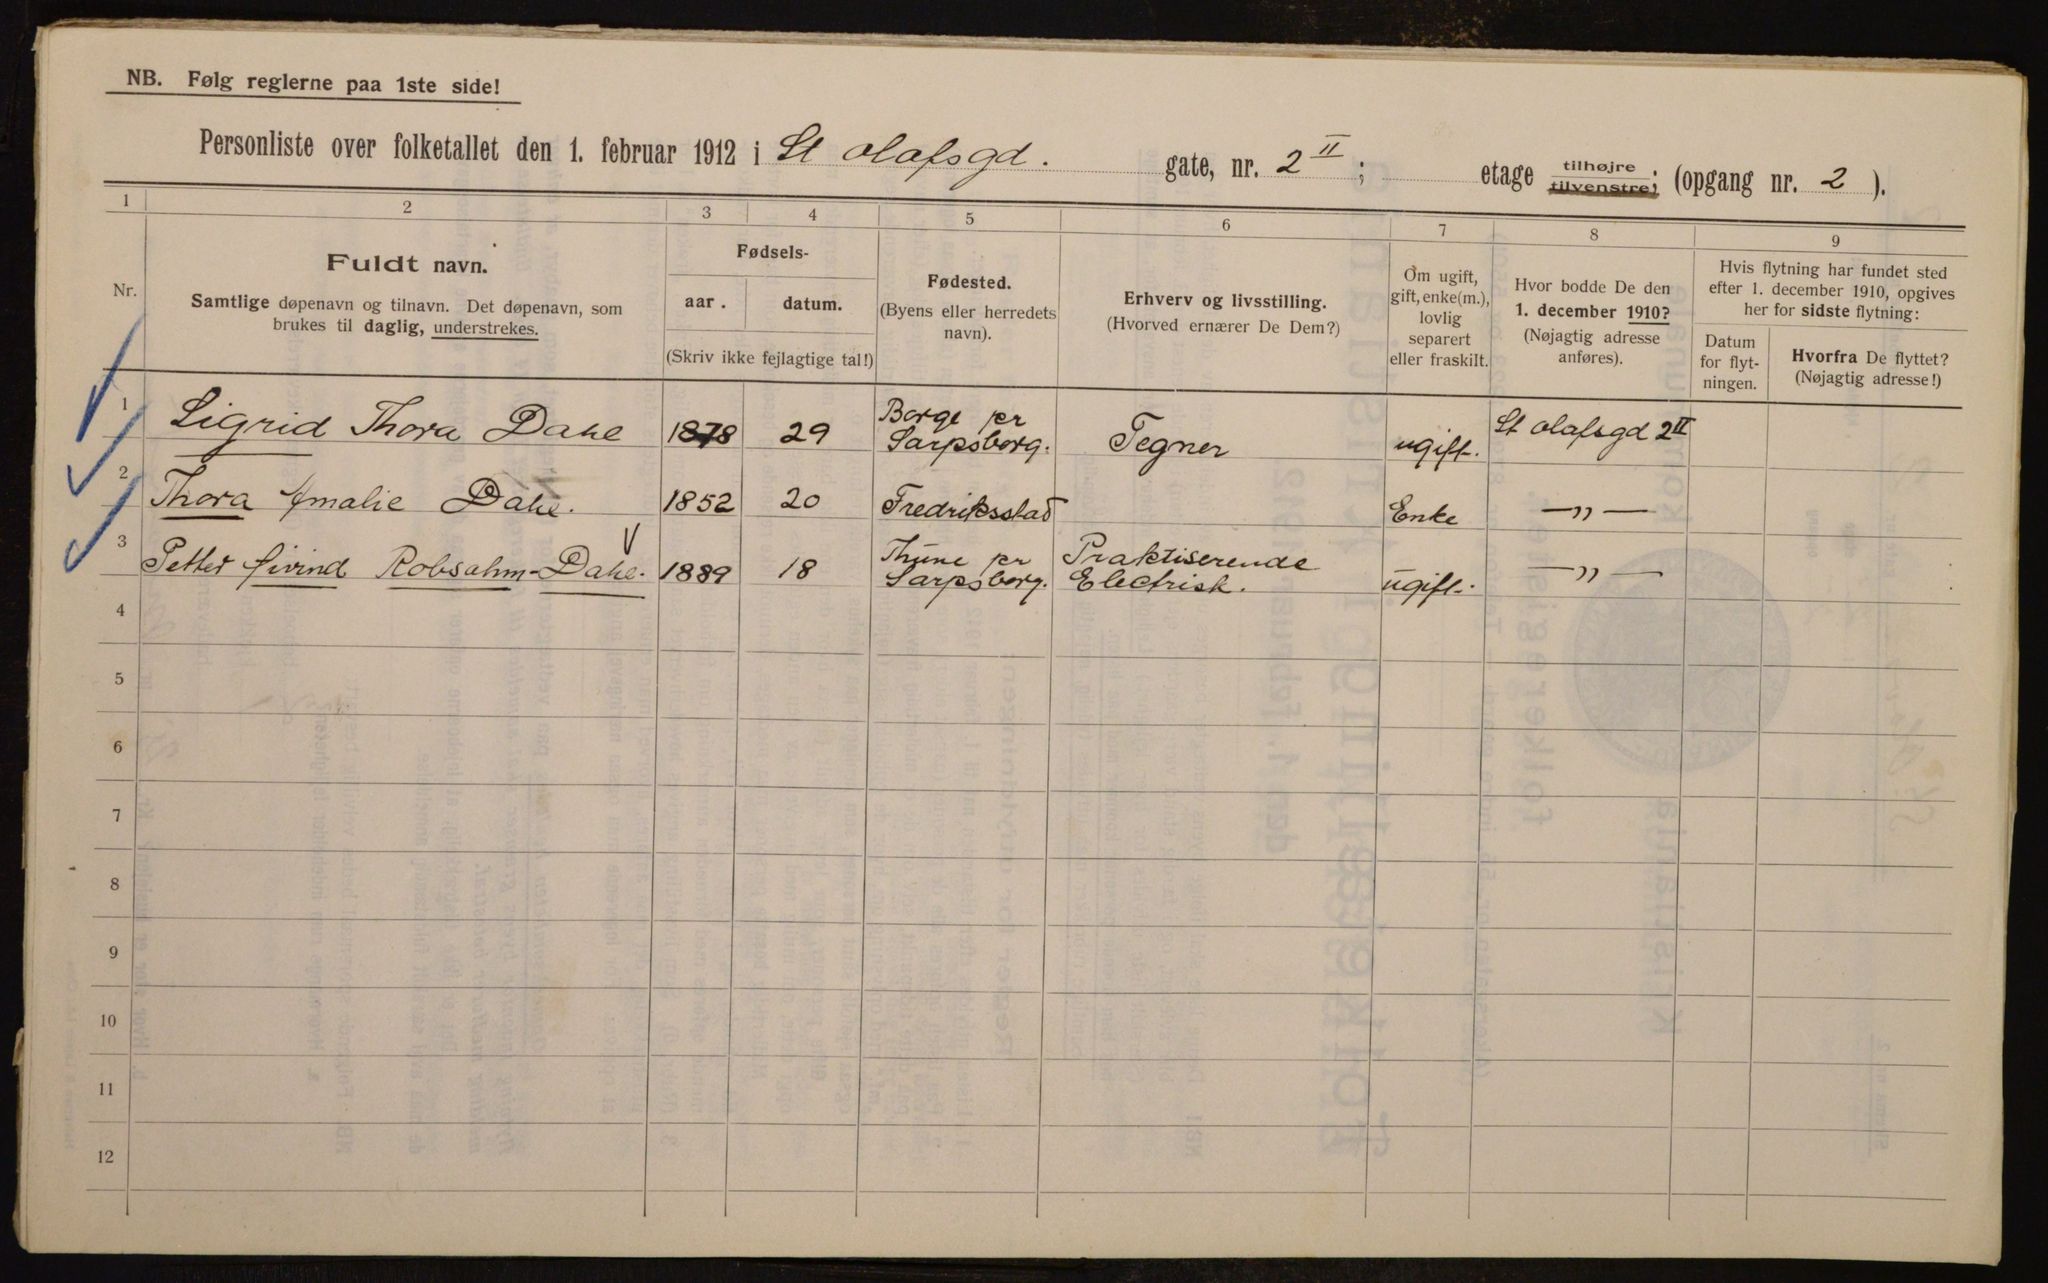 NB. Følg reglerne paa 1ste side!
Personliste over folketallet den 1. februar 1912 i St Olafsgd. gate, nr. 2 II; etage tilhøjre tilvenstre; (opgang nr. 2).
1 2 3 4 5 6 7 8 9
Nr.
Fuldt navn.
Samtlige døpenavn og tilnavn. Det døpenavn, som
brukes til daglig, understrekes.
Fødsels-
aar. datum.
(Skriv ikke fejlagtige tal!)
Fødested.
(Byens eller herredets
navn).
Erhverv og livsstilling.
(Hvorved ernærer De Dem?)
Om ugift,
gift, enke(m.),
lovlig
separert
eller fraskilt.
Hvor bodde De den
1. december 1910?
(Nøjagtig adresse
anføres).
Hvis flytning har fundet sted
efter 1. december 1910, opgives
her for sidste flytning:
Datum
for flyt-
ningen.
Hvorfra De flyttet?
(Nøjagtig adresse!)
1 Sigrid Thora Dahl 1878 29 Borge pr Sarpsborg. Tegner ugift. St Olafsgd 2 II
2 Thora Amalie Dahl. 1852 20 Fredriksstad Enke —„—
3 Petter Øivind Robsahm-Dahl. 1889 18 Thune pr Sarpsborg. Praktiserende Electrisk. ugift. —„—
4
5
6
7
8
9
10
11
12